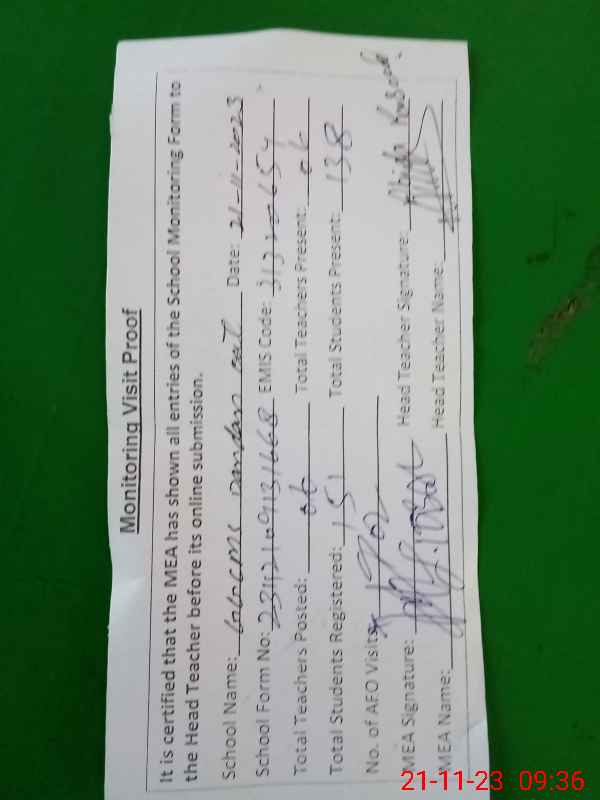 Monitoring Visit Proof
It is certified that the MEA has shown all entries of the School Monitoring Form to
the Head Teacher before its online submission.
School Name: Date: 21-11-2023
School Form No: EMIS Code:
Total Teachers Posted: 06 Total Teachers Present: 06
Total Students Registered: 151 Total Students Present: 138
No. of AFO Visits:
MEA Signature: Head Teacher Signature:
MEA Name: Head Teacher Name:
21-11-23 09:36